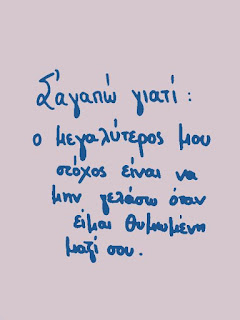 Σ'αγαπώ γιατί:
ο μεγαλύτερος μου
στόχος είναι να
μην γελάσω όταν
είμαι θυμωμένη
μαζί σου.